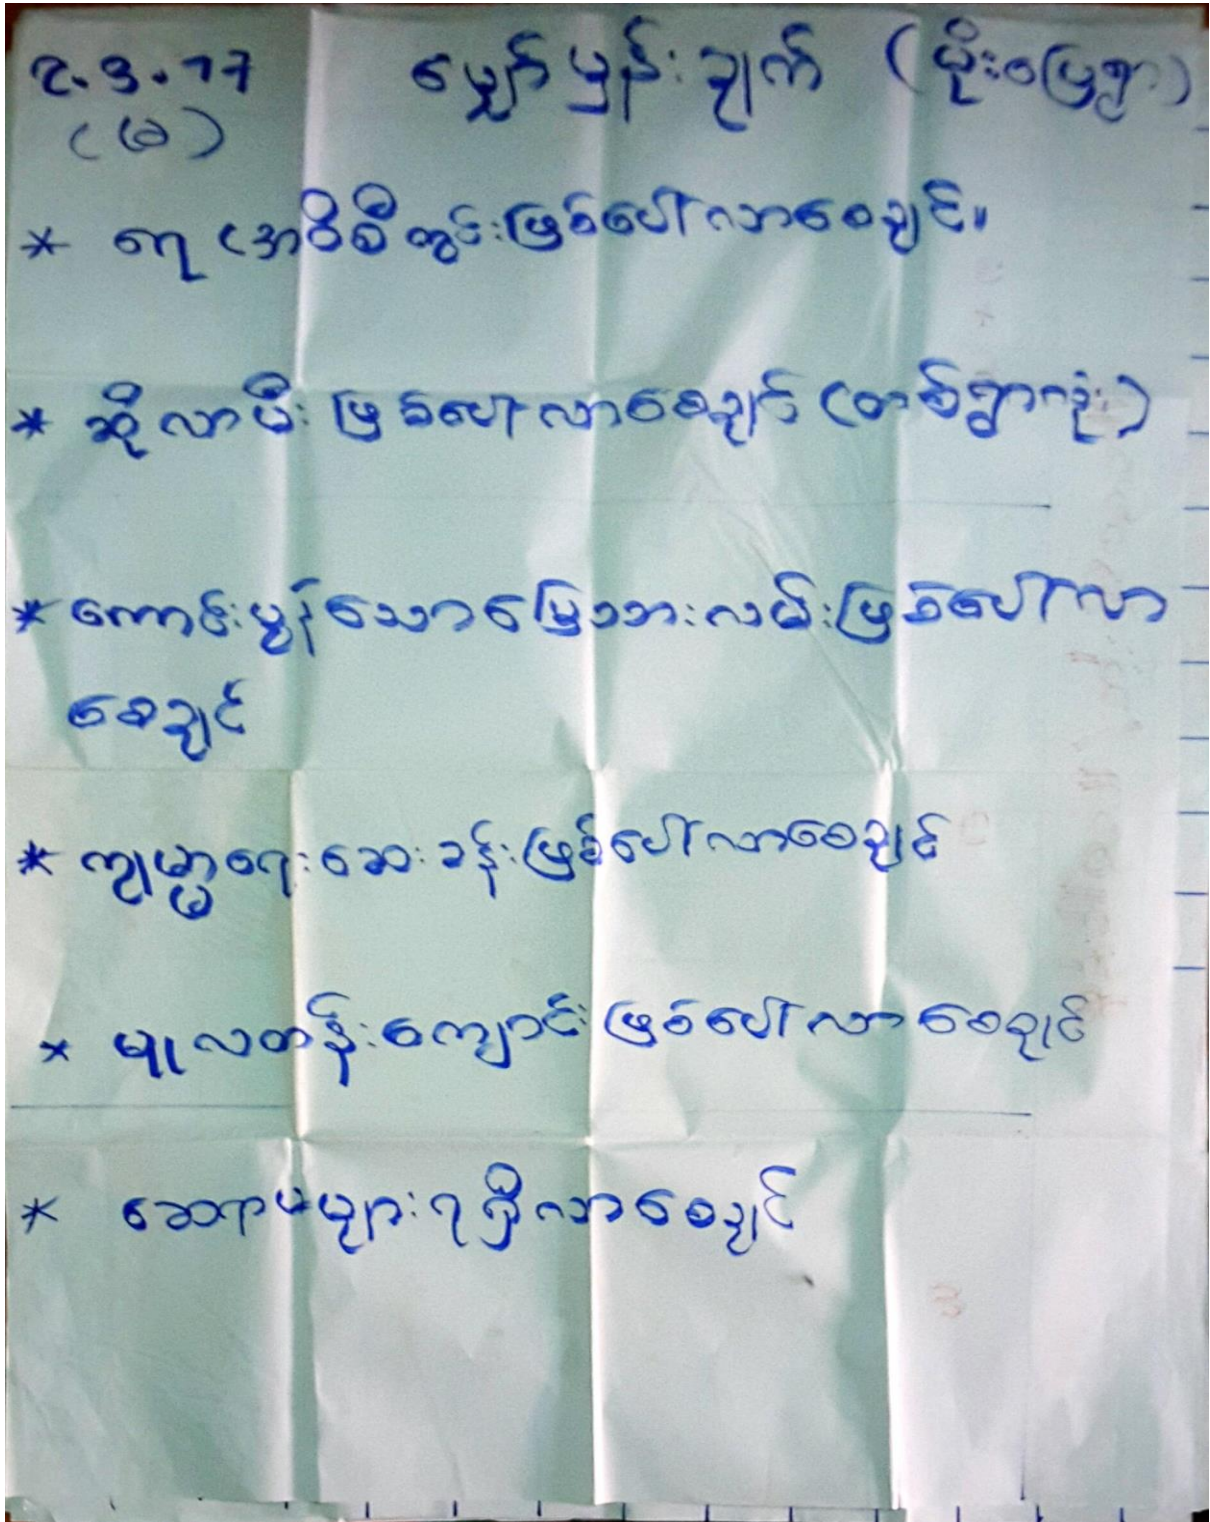 2.3.17 မျှော်မှန်းချက် (မိုးဗြေရွာ)
(ခ)
* ရေ (အဝီစိတွင်းဖြစ်ပေါ်လာစေချင်။
* ဆိုလာမီး ဖြစ်ပေါ်လာစေချင် (တစ်ရွာလုံး)
* ကောင်းမွန်သောမြေသားလမ်းဖြစ်ပေါ်လာ
စေချင်
* ကျမ္မာရေးဆေးခန်းဖြစ်ပေါ်လာစေချင်
* မူလတန်းကျောင်းဖြစ်ပေါ်လာစေချင်
* ဆရာမများရရှိလာစေချင်